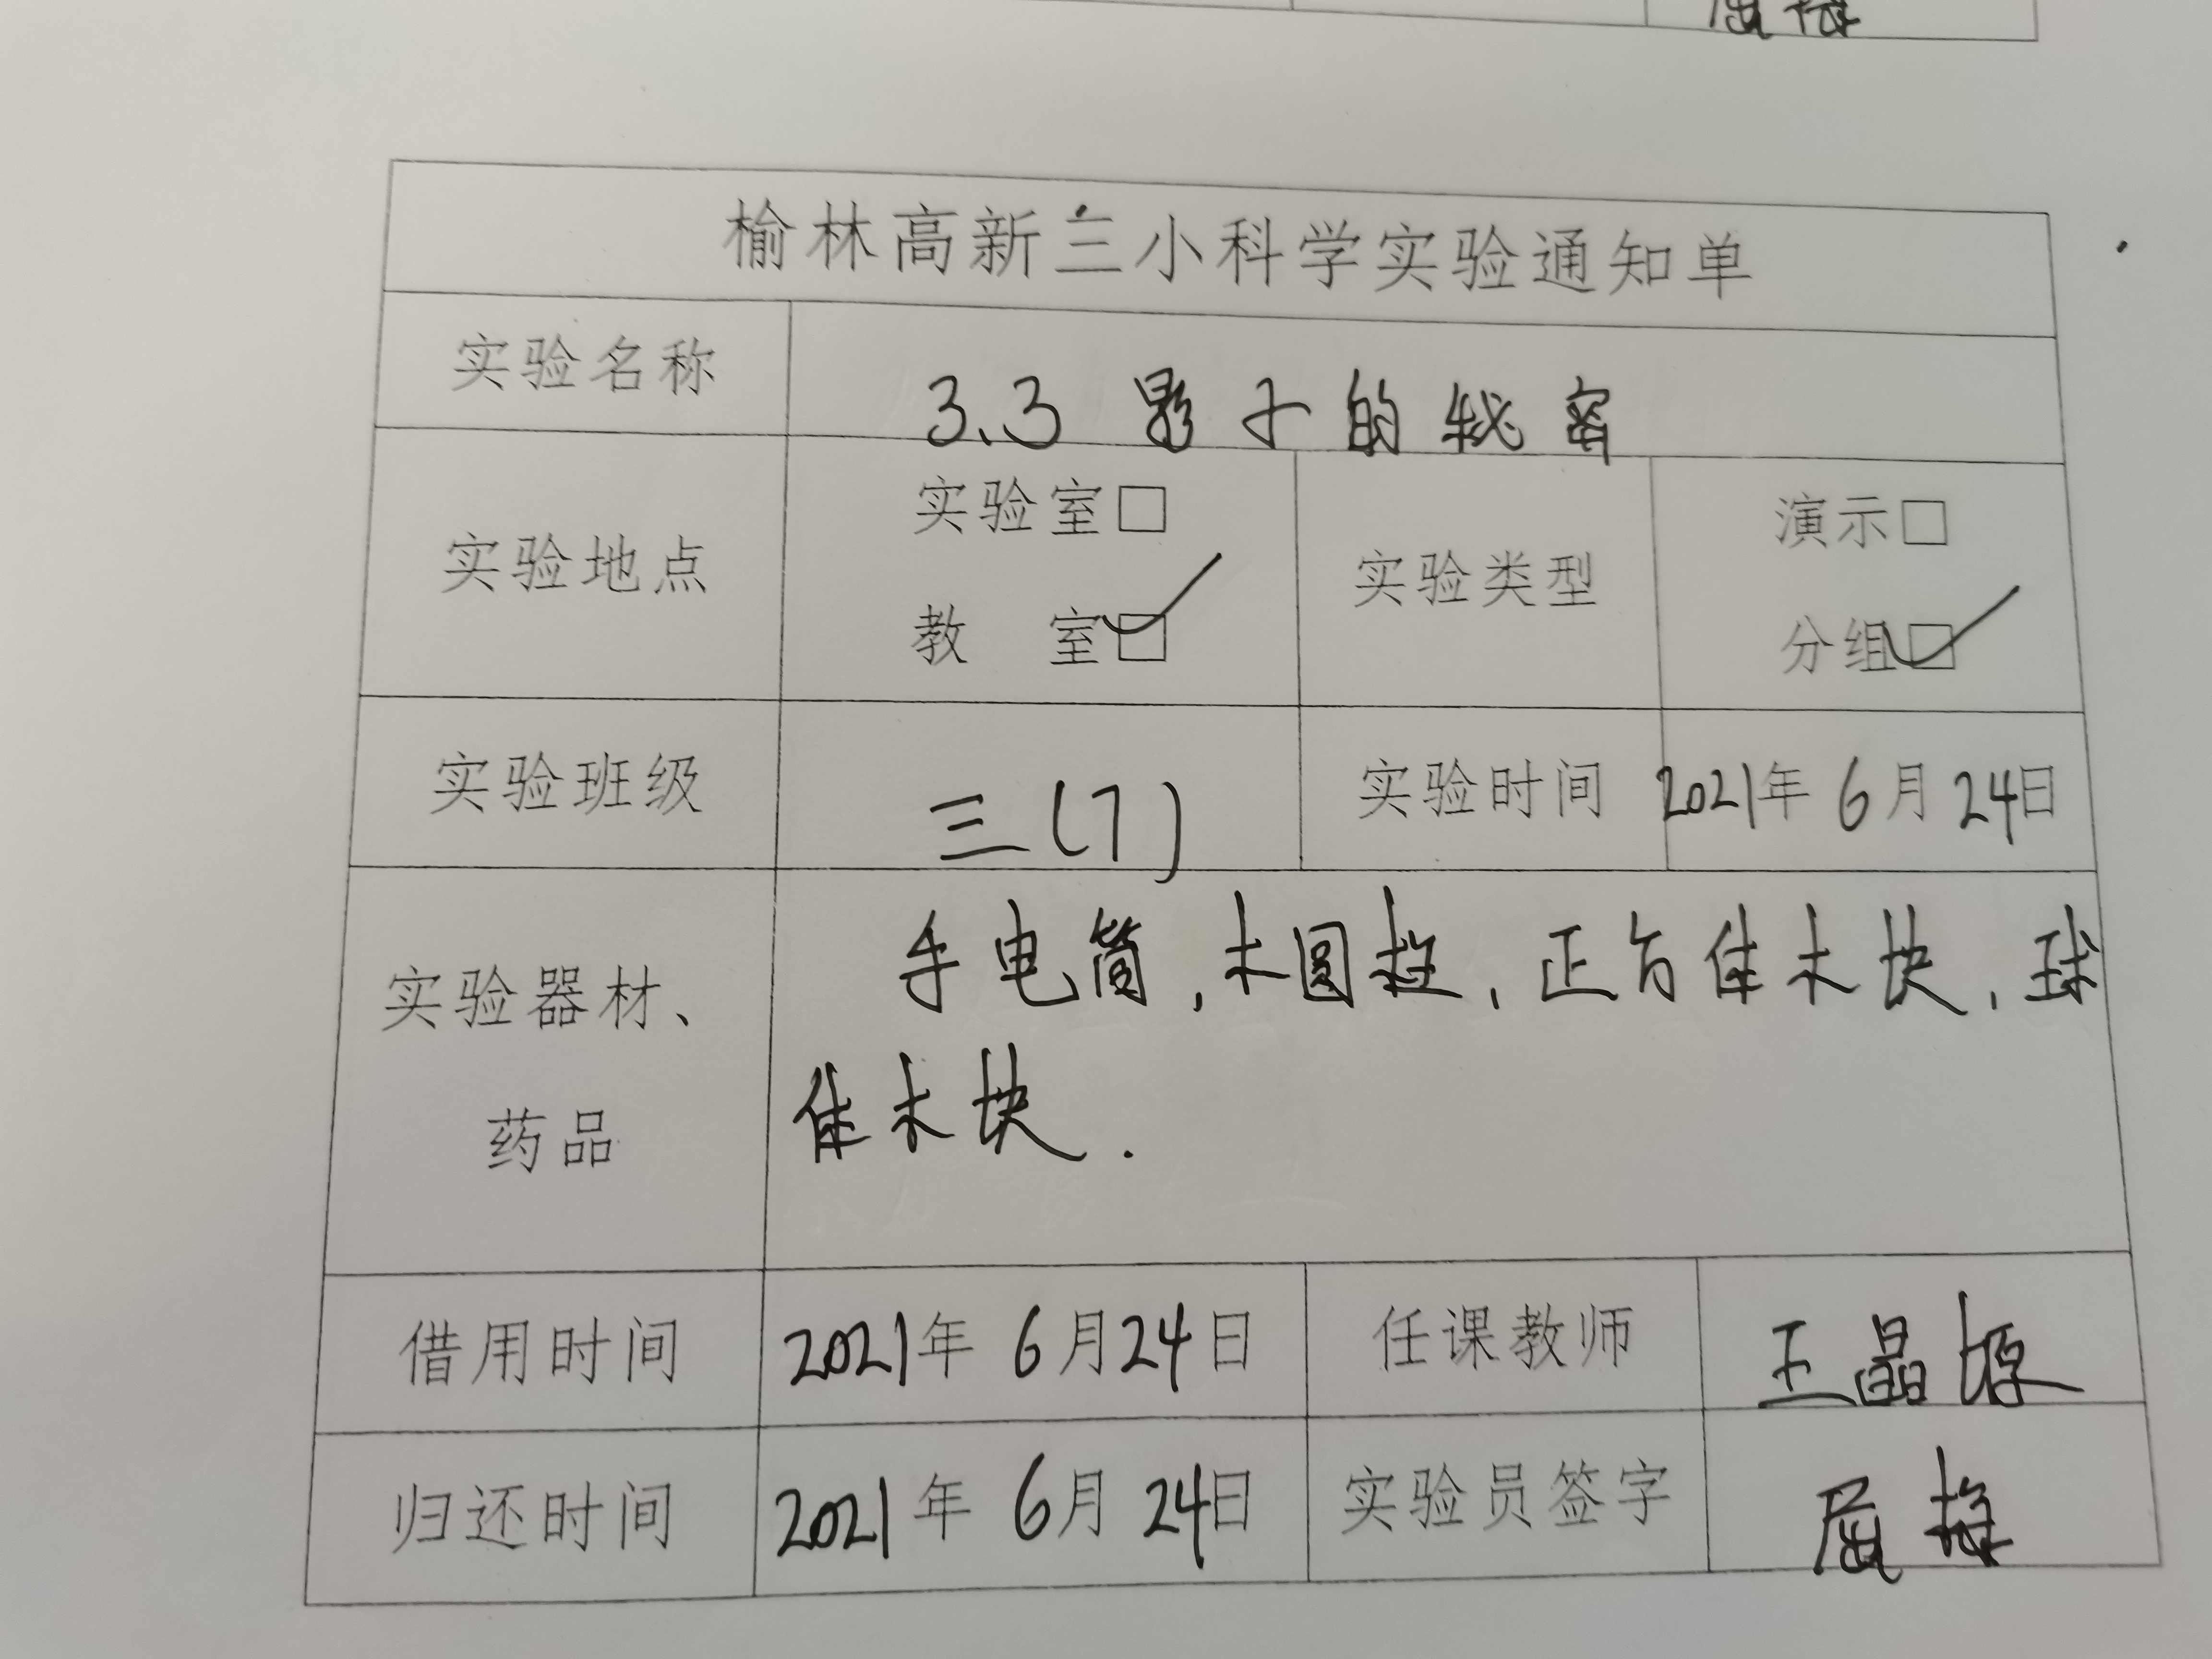 屈梅
榆林高新三小科学实验通知单
实验名称 3.3 影子的秘密
实验地点 实验室□ 教 室☑ 实验类型 演示□ 分组☑
实验班级 三(7) 实验时间 2021年 6月 24日
实验器材、药品 手电筒,木圆柱、正方体木块、球
体木块.
借用时间 2021年 6月24日 任课教师 王晶
归还时间 2021年 6月 24日 实验员签字 屈梅